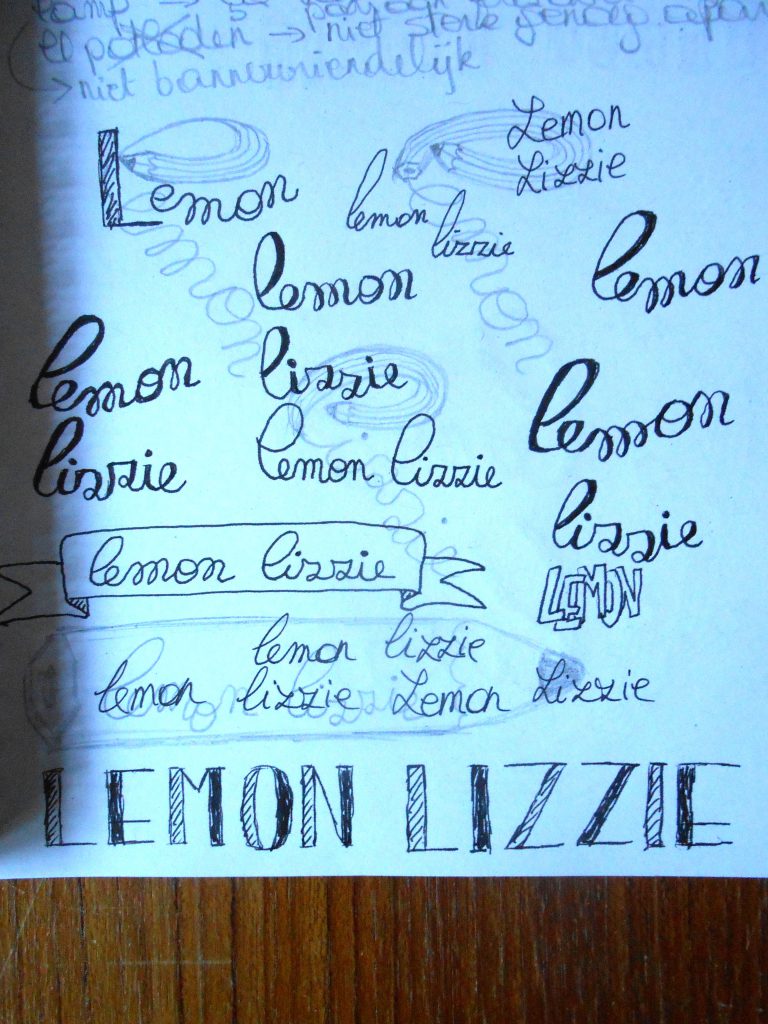 lamp →
potloden → niet sterk genoeg
→ niet bannervriendelijk
Lemon
Lizzie
Lemon
lemon
lizzie
lemon
lemon
lemon
lizzie
lemon
lizzie
lemon lizzie
lemon
lizzie
lemon lizzie
LEMON
lemon lizzie
lemon lizzie Lemon Lizzie
lemon lizzie
LEMON LIZZIE